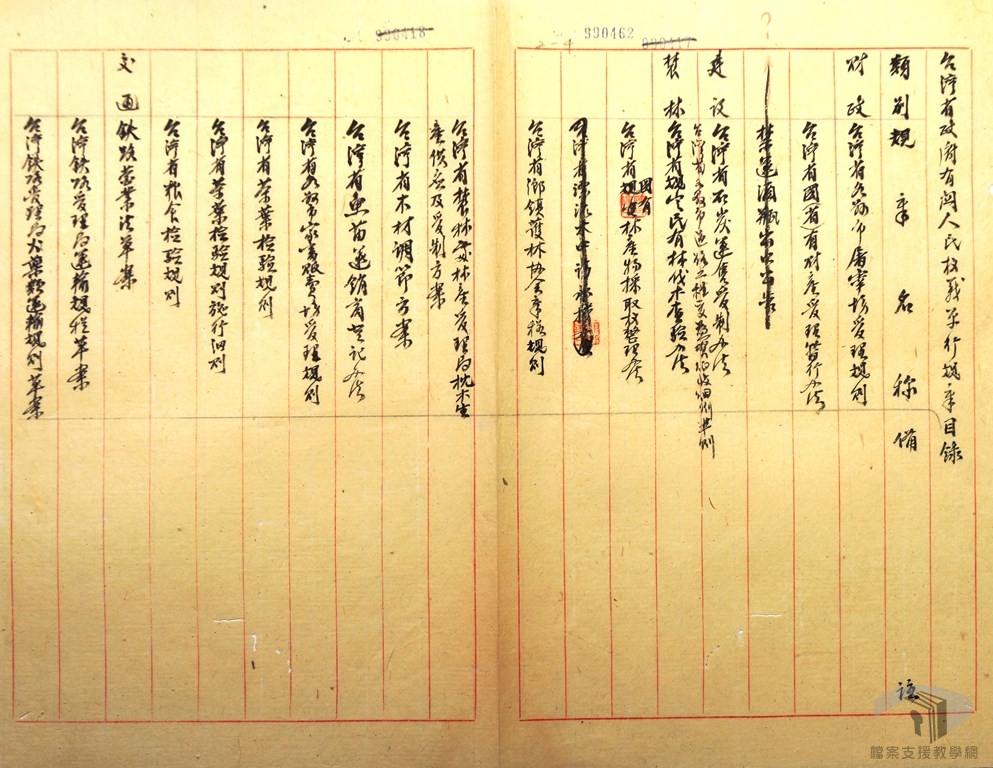 990418
2-4 990462
990417
台灣省政府有關人民權義單行規章目錄
類別 規章名稱 備註
財政 台灣省各縣市屠宰場管理規則
台灣省國省有財產管理暫行辦法
禁運酒瓶出省
建設 台灣省石炭運售管制辦法
台灣省各縣市道路工程受益費征收細則準則
農林 台灣省規定民有林伐木查驗辦法
台灣省國有林產物採取權整理辦法
台灣省漂流木
台灣省鄉鎮護林協會章程規則
台灣省農林廳林產管理局枕木生
產供應及管制方案
台灣省木材調節方案
台灣省魚苗運銷商登記辦法
台灣省各縣市家畜販賣場管理規則
台灣省茶葉檢驗規則
台灣省茶葉檢驗規則施行細則
台灣省糧食檢驗規則
交通 鐵路營業法草案
台灣鐵路管理局運輸規程草案
台灣鐵路管理局火藥類運輸規則草案
檔案支援教學網